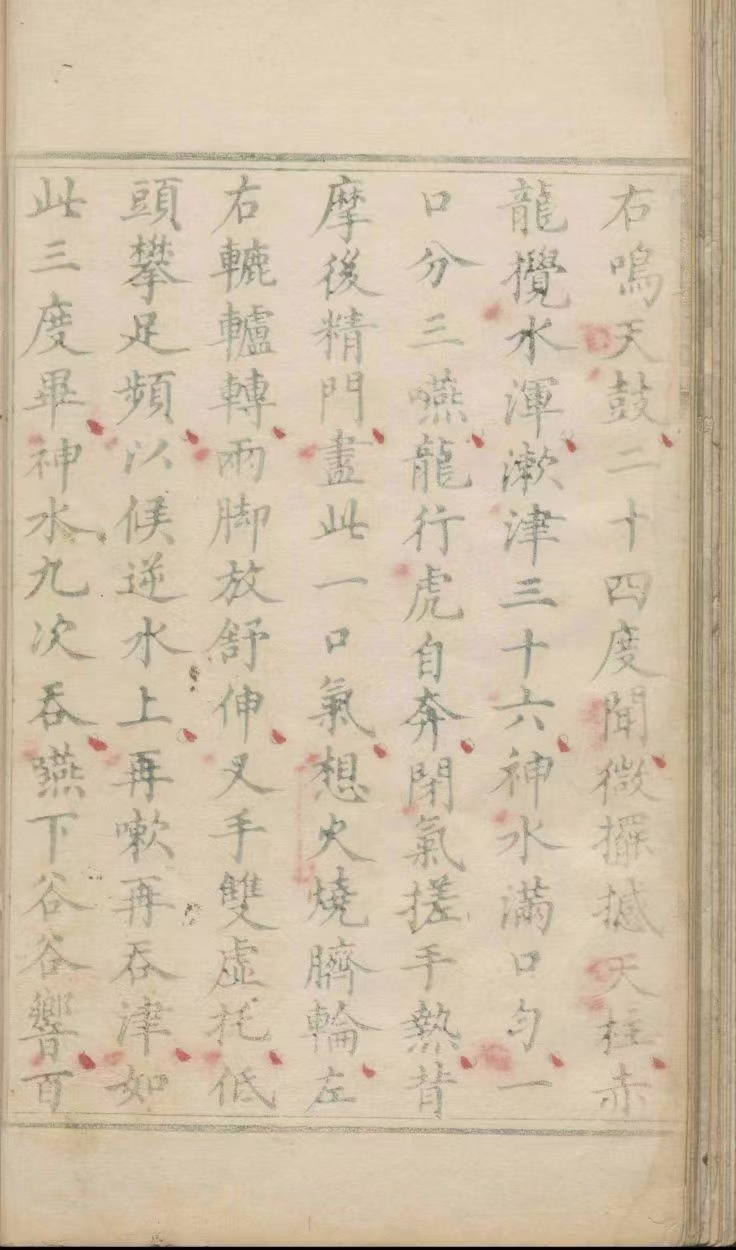 右鳴天鼓二十四度聞微擺撼天柱赤
龍攪水渾漱津三十六神水滿口勻一
口分三嚥龍行虎自奔閉氣搓手熱背
摩後精門盡此一口氣想火燒臍輪左
右轆轤轉兩脚放舒伸叉手雙虛托低
頭攀足頻以候逆水上再嗽再吞津如
此三度畢神水九次吞嚥下谷谷響百